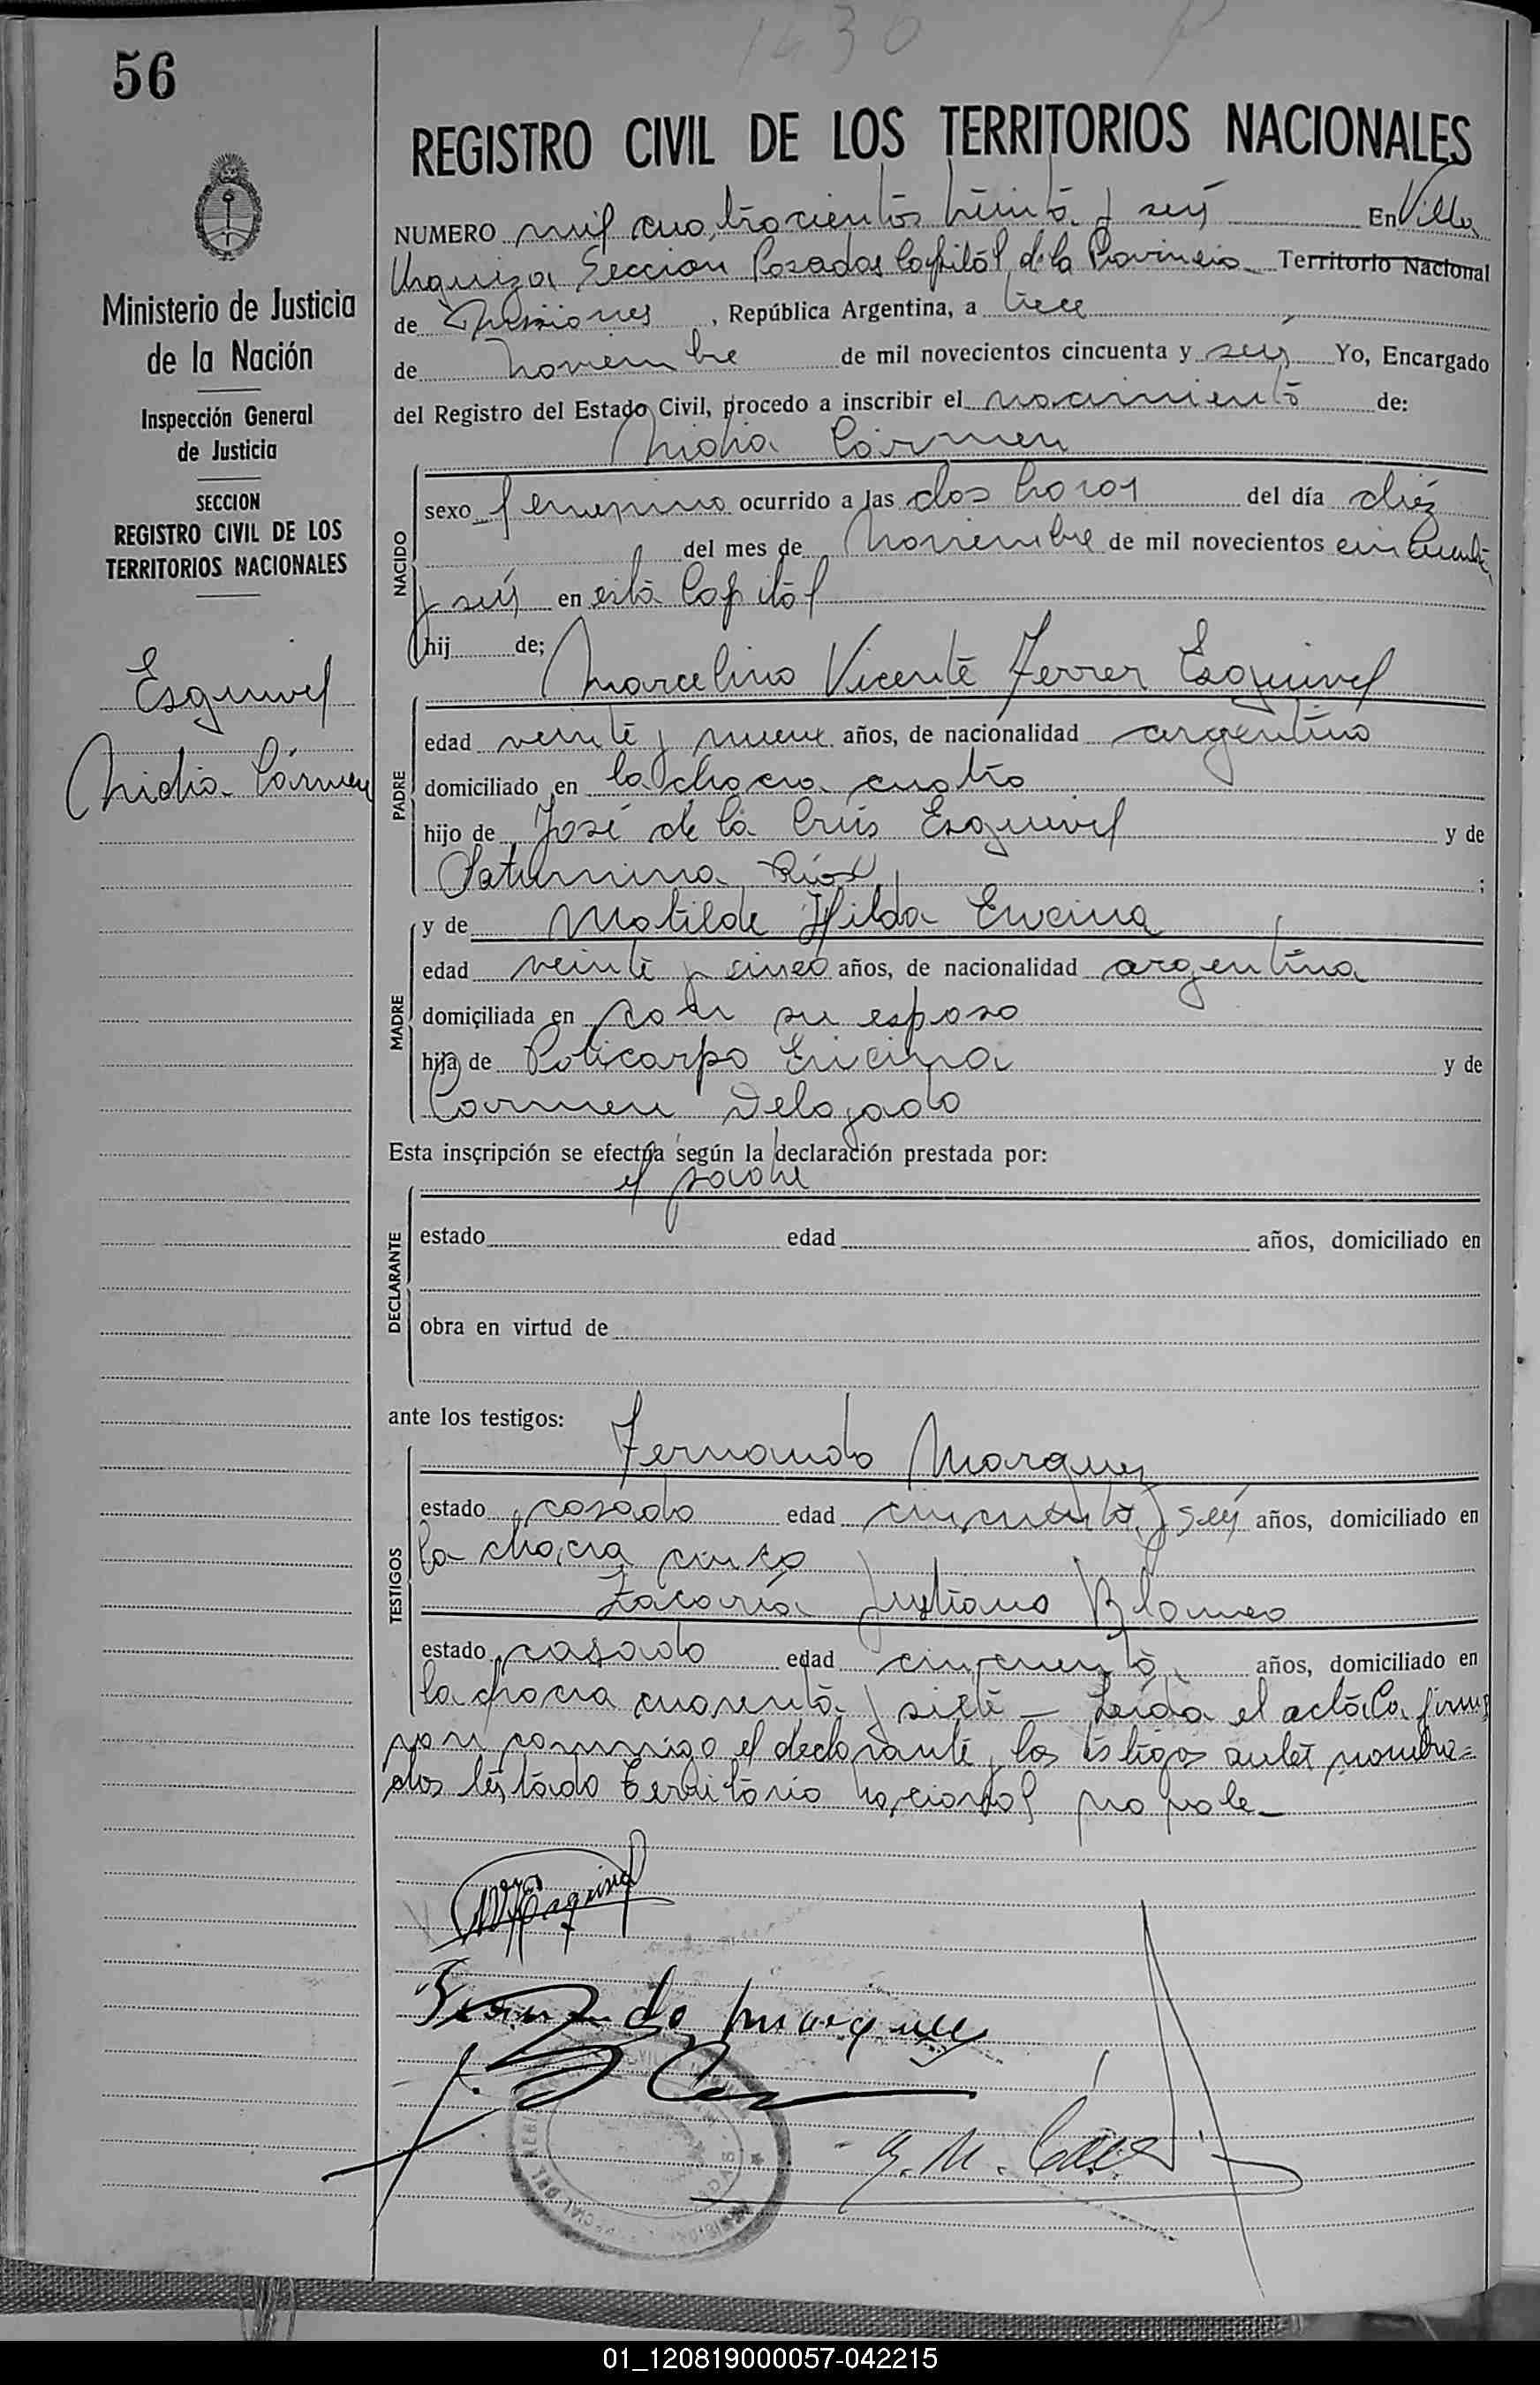 56
Ministerio de Justicia
de la Nación
Inspección General
de Justicia
SECCION
REGISTRO CIVIL DE LOS
TERRITORIOS NACIONALES
Esquivel
Nidia Cármen
REGISTRO CIVIL DE LOS TERRITORIOS NACIONALES
NUMERO mil cuatrocientos treinta y seis En Villa
Urquiza Sección Posadas Capital de la Provincia Territorio Nacional
de Misiones, República Argentina, a trece
de noviembre de mil novecientos cincuenta y seis Yo, Encargado
del Registro del Estado Civil, procedo a inscribir el nacimiento de:
Nidia Cármen
NACIDO
sexo femenino ocurrido a las dos horas del día diéz
del mes de Noviembre de mil novecientos cincuenta
y seis en esta Capital
hij de; Marcelino Vicente Ferrer Esquivel
PADRE
edad veinte y nueve años, de nacionalidad argentino
domiciliado en la chacra cuatro
hijo de José de la Crúis Esquivel y de
Saturnina Ríos ;
y de Matilde Hilda Encina
MADRE
edad veinte y cinco años, de nacionalidad argentina
domiciliada en con su esposo
hija de Policarpo Encina y de
Carmen Delgado
Esta inscripción se efectúa según la declaración prestada por:
el padre
DECLARANTE
estado edad años, domiciliado en
obra en virtud de
ante los testigos:
Fernando Marquez
TESTIGOS
estado casado edad cincuenta y seis años, domiciliado en
la chacra cinco
Zacaría Justiano
estado casado edad cincuenta años, domiciliado en
la chacra cuarenta y siete — Leída el acta la firma
ron conmigo el declarante y los testigos antes nombra=
dos testado Territorio Nacional no vale—
MVF Esquivel
Fernando Marquez
01_120819000057-042215